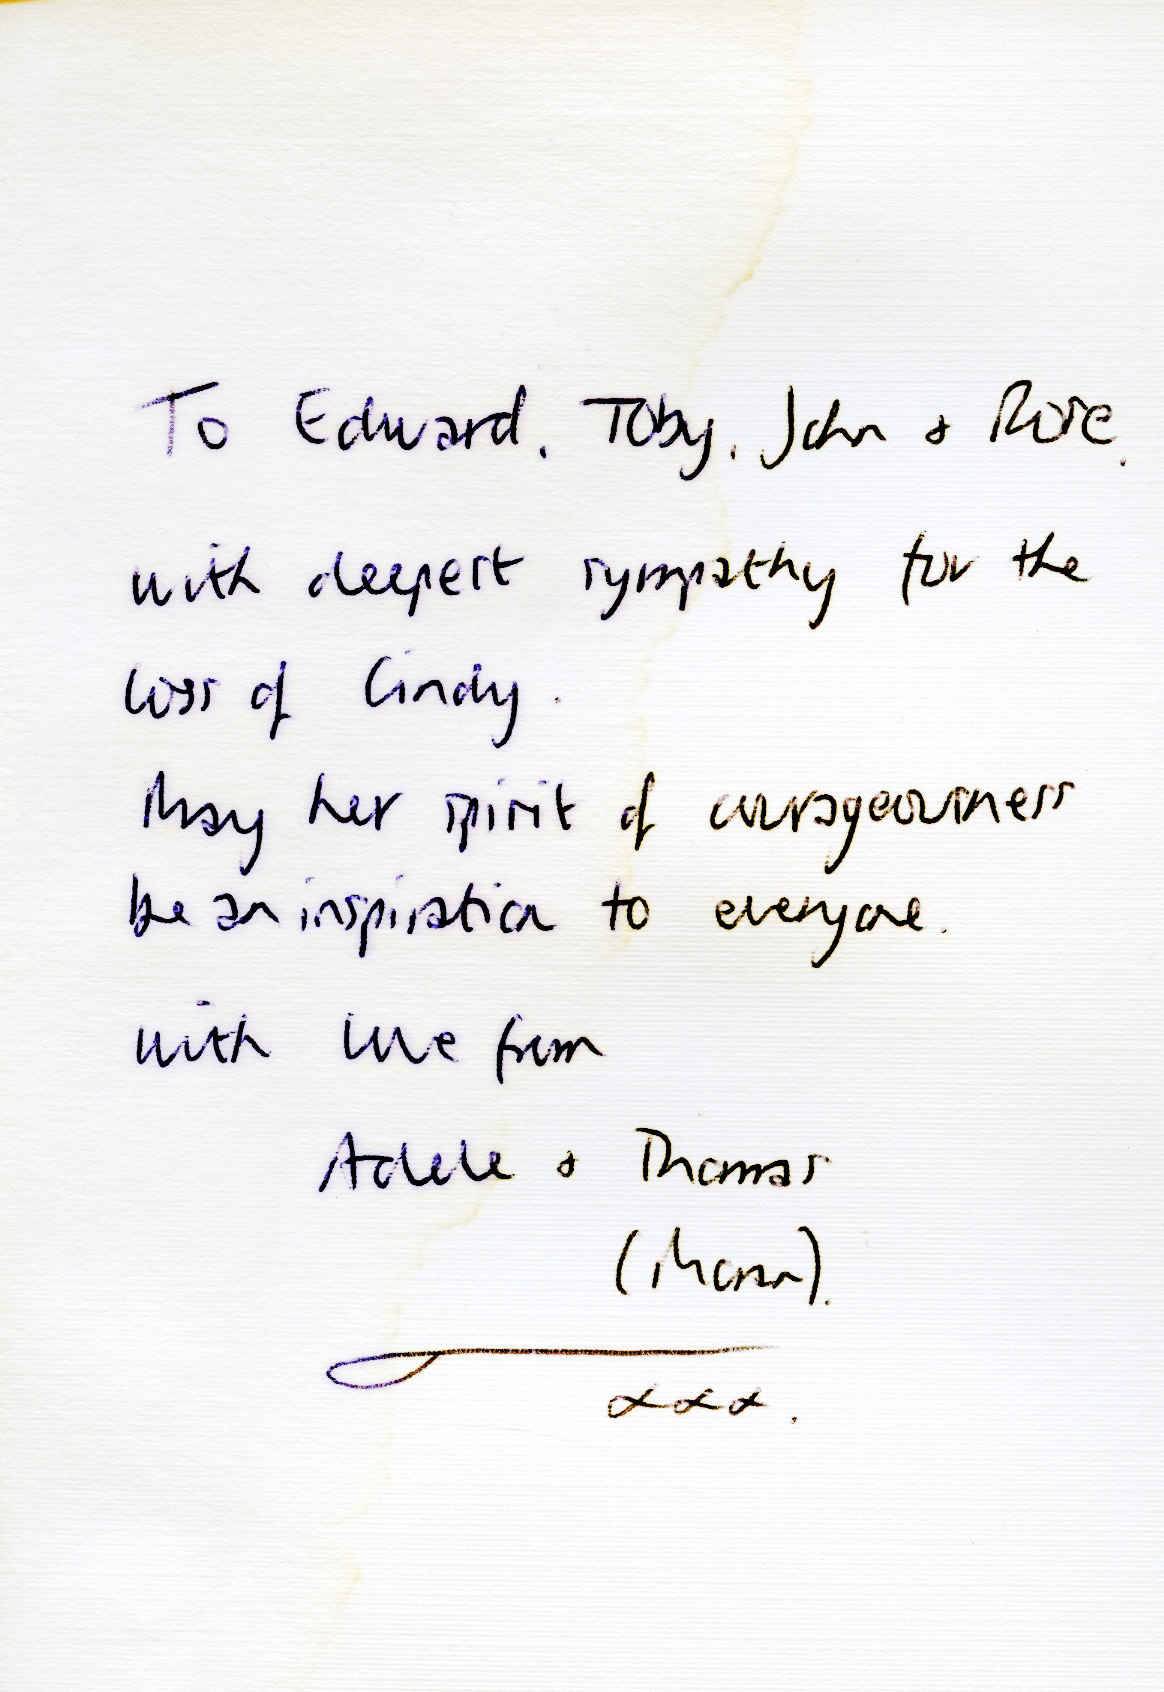 To Edward, Toby, John & Rose.
with deepest sympathy for the
loss of Cindy.
May her spirit of courageousness
be an inspiration to everyone.
with love from
Adele & Thomas
xxx.